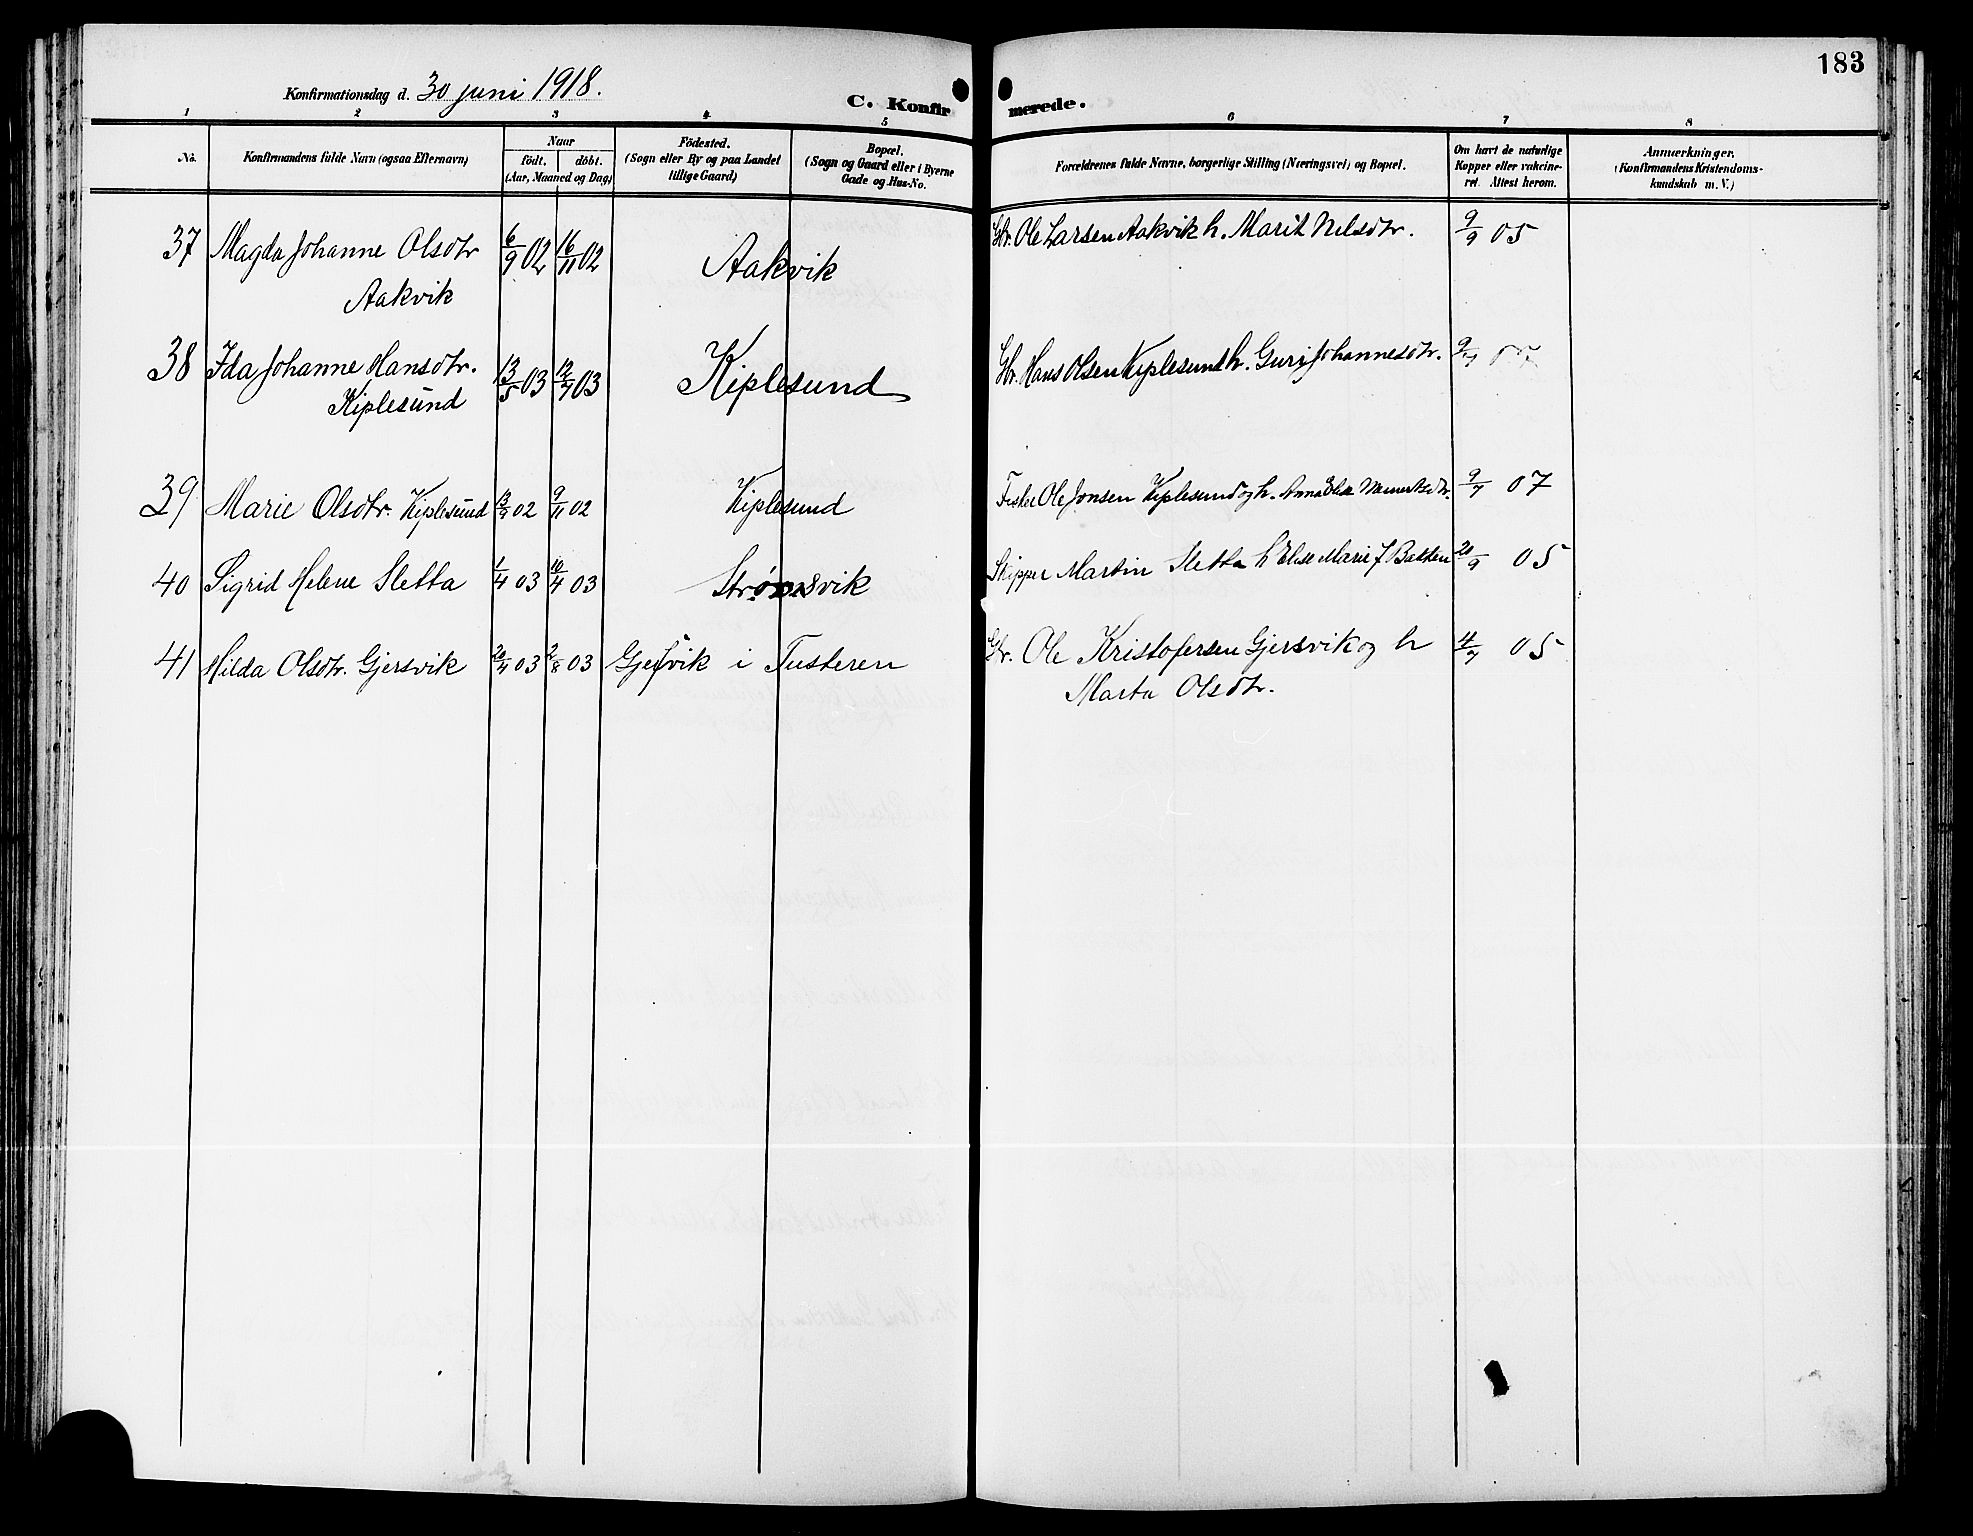 183
Konfirmationsdag d. 30 juni 1918.
C. Konfirmerede.
1 2 3 4 5 6 7 8
No.
Konfirmandens fulde Navn (ogsaa Efternavn)
Naar
født. døbt.
(Aar, Maaned og Dag)
Födested.
(Sogn eller By og paa Landet
tillige Gaard)
Bopæl.
(Sogn og Gaard eller i Byerne
Gade og Hus-No.
Forældrenes fulde Navne, borgerlige Stilling (Næringsvei) og Bopæl.
Om havt de naturlige
Kopper eller vakcine-
ret. Attest herom.
Anmærkninger.
(Konfirmandens Kristendoms-
kundskab m. V.)
37 Magda Johanne Olsdtr 6/9 02 16/11 02 Aakvik Gbr. Ole Larsen Aakvik h. Marit Nelsdtr. 9/9 05
Aakvik
38 Ida Johanne Hansdtr. 13/5 03 12/7 03 Kiplesund Gbr. Hans Olsen Kiplesund h. Guri Johannesdtr. 9/7 07
Kiplesund
39 Marie Olsdtr. Kiplesund 02 9/11 02 Kiplesund Fisker Ole Jonsen Kiplesund og h. Anna Elise 9/7 07
40 Sigrid Helene Sletta 1/4 03 10/4 03 Strømsvik Skipper Martin Sletta h Elise Marie J Bakken 20/9 05
41 Hilda Olsdtr. Gjersvik 03 2/8 03 Gjersvik i Tusteren Gbr. Ole Kristofersen Gjersvik og h 4/7 05
Marta Olsdtr.